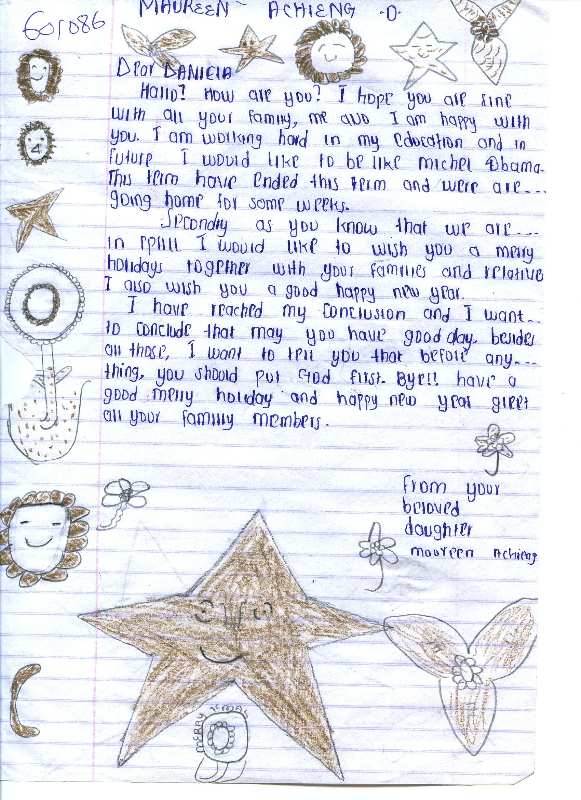 MAUREEN ACHIENG -O-
Dear DANIELA
Hallo? How are you? I hope you are fine
with all your family, me also I am happy with
you. I am working hard in my education and in
future I would like to be like michel Obama.
This term have ended this term and were are...
going home for some weeks.
Secondly as you know that we are...
in April I would like to wish you a merry
holidays together with your families and relative
I also wish you a good happy new year.
I have reached my conclusion and I want..
to conclude that may you have good day. besides
all those, I want to tell you that before any...
thing, you should put God first. Bye!! have a
good merry holiday and happy new year greet
all your family members.
From your
beloved
daughter
maureen Achieng
MERRY XMAS